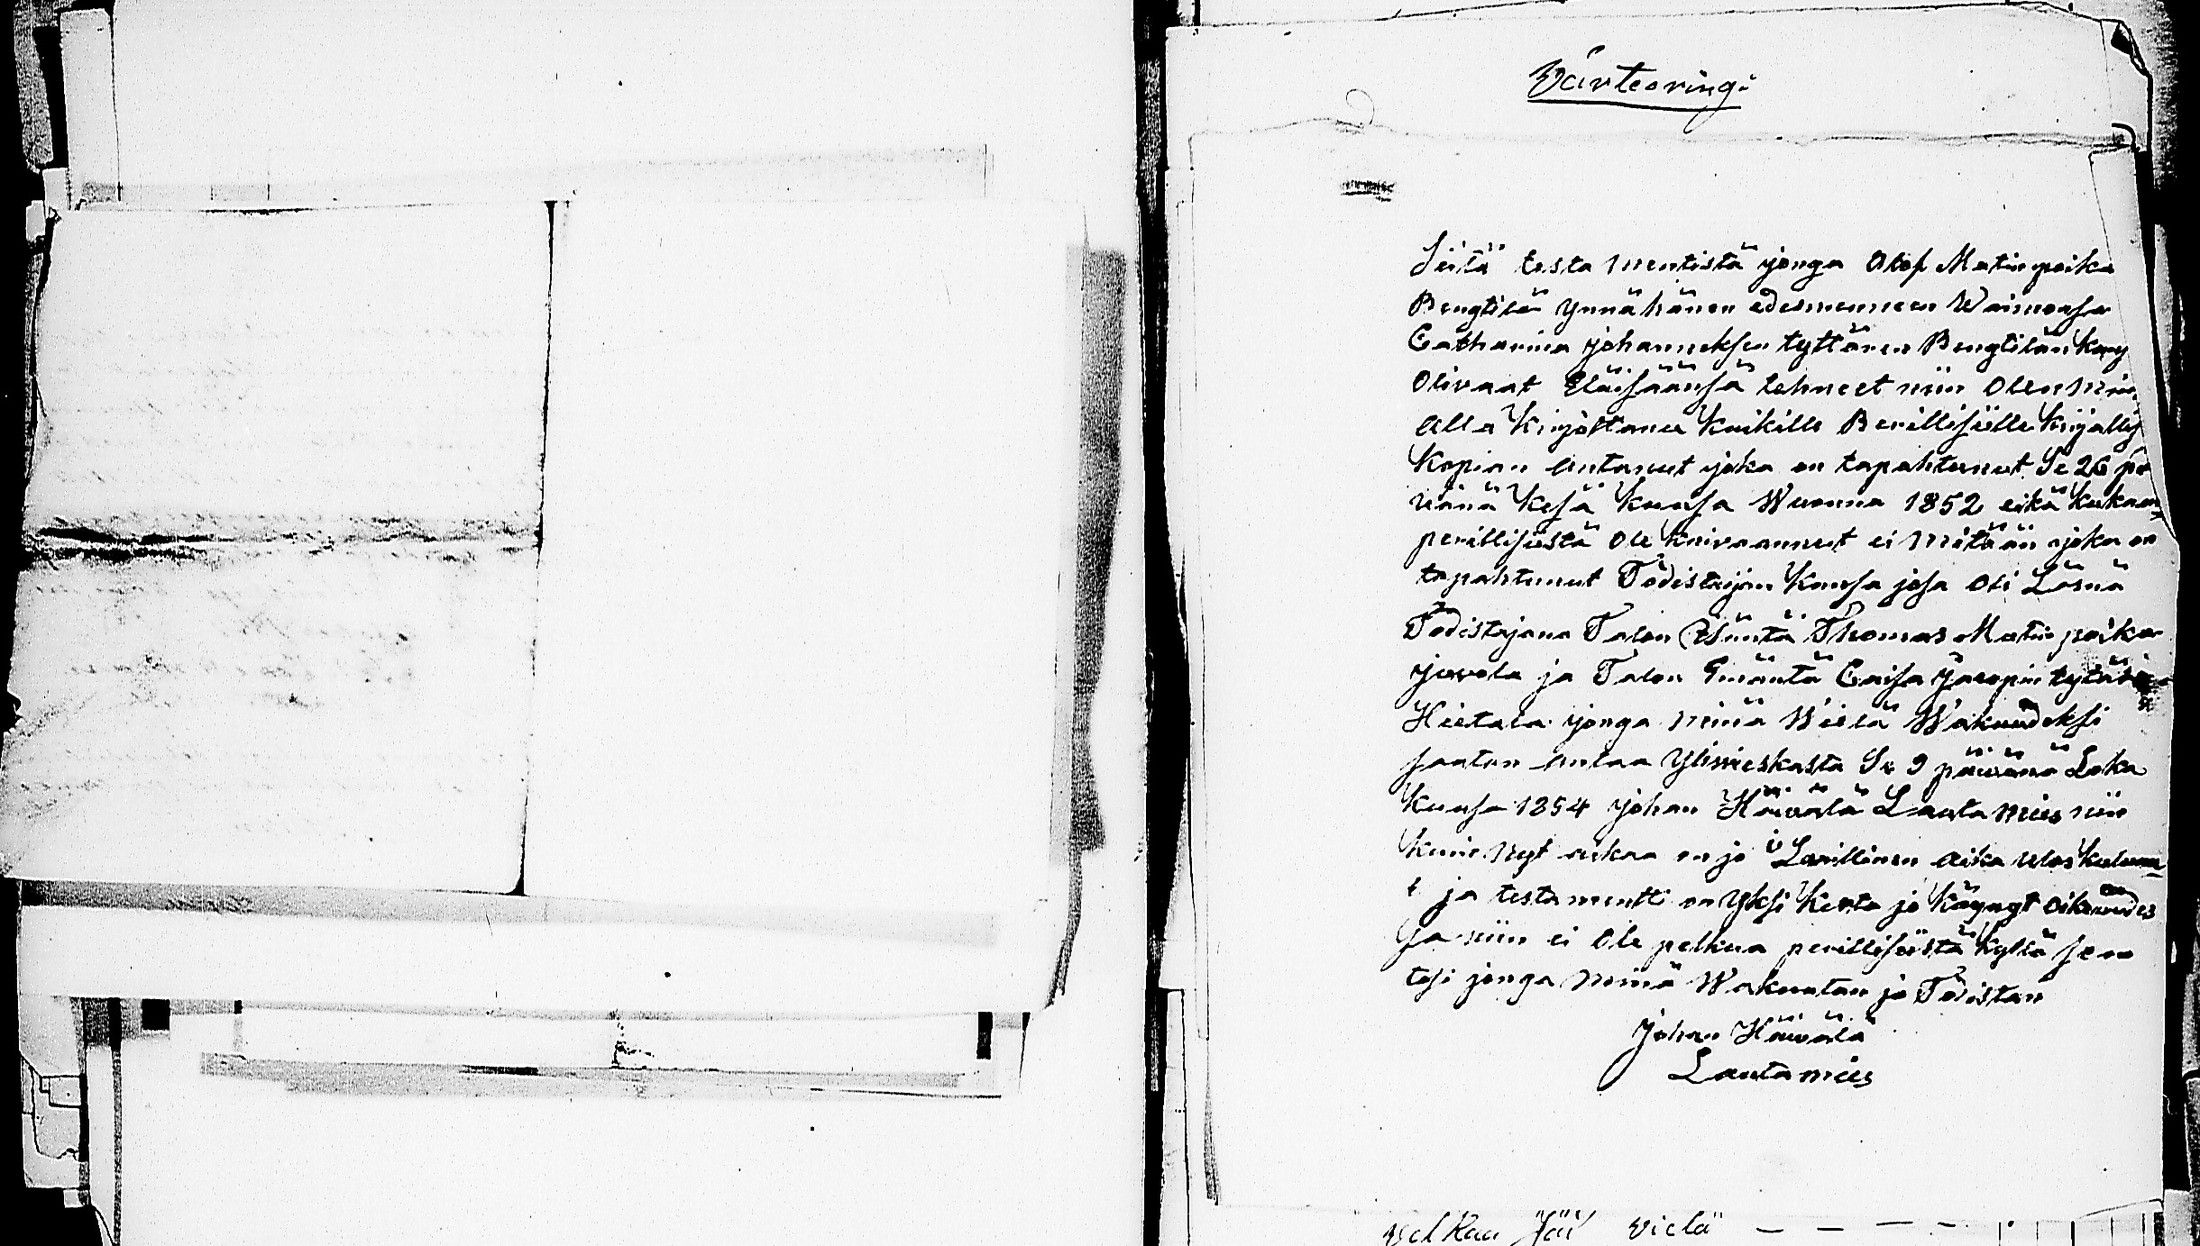 Värteoringi
Siitä testa mentistä jonga Olof Matin poika
Bengtilän ynnä hänen edesmenneen Waimonsa
Catharina johanneksen tyttären Bengtilän Kans
Olivaat Eläisäänsä tehneet niin Olen Minä
alla Kirjoittanu Kaikille Berillisille Kirjallis
Kopian antanut joka on tapahtunut Se 26 pä
vänä Kesä Kuusa Wuonna 1852 eikä Kukaan
perillisistä Ole Kaivaannut ei Mitään ajoka on
tapahtunut Todistajan Kansa josa Oli Läsnä
Todistajana Talon Isäntä Thomas Matin poika
juvola ja Talon Emäntä Caisa Jacopin tytär
Hietala jonga Minä Wielä Wakuudeksi
saatan antaa Ylivieskasta Se 9 päivänä Loka
Kuusa 1854 Johan Häivälä Lauta Mies niin
Kuin Nyt aikaa on jo Laillinen aika ulos Kulunu
t ja testamentti on Yksi Kerta jo Käynyt Oikeudes
sa niin ei Ole pelkua perillisistä Kyllä se on
tosi jonga Minä Wakuutan ja Todistan
Johan Häivälä
Lautamies
velkaa Jäi vielä